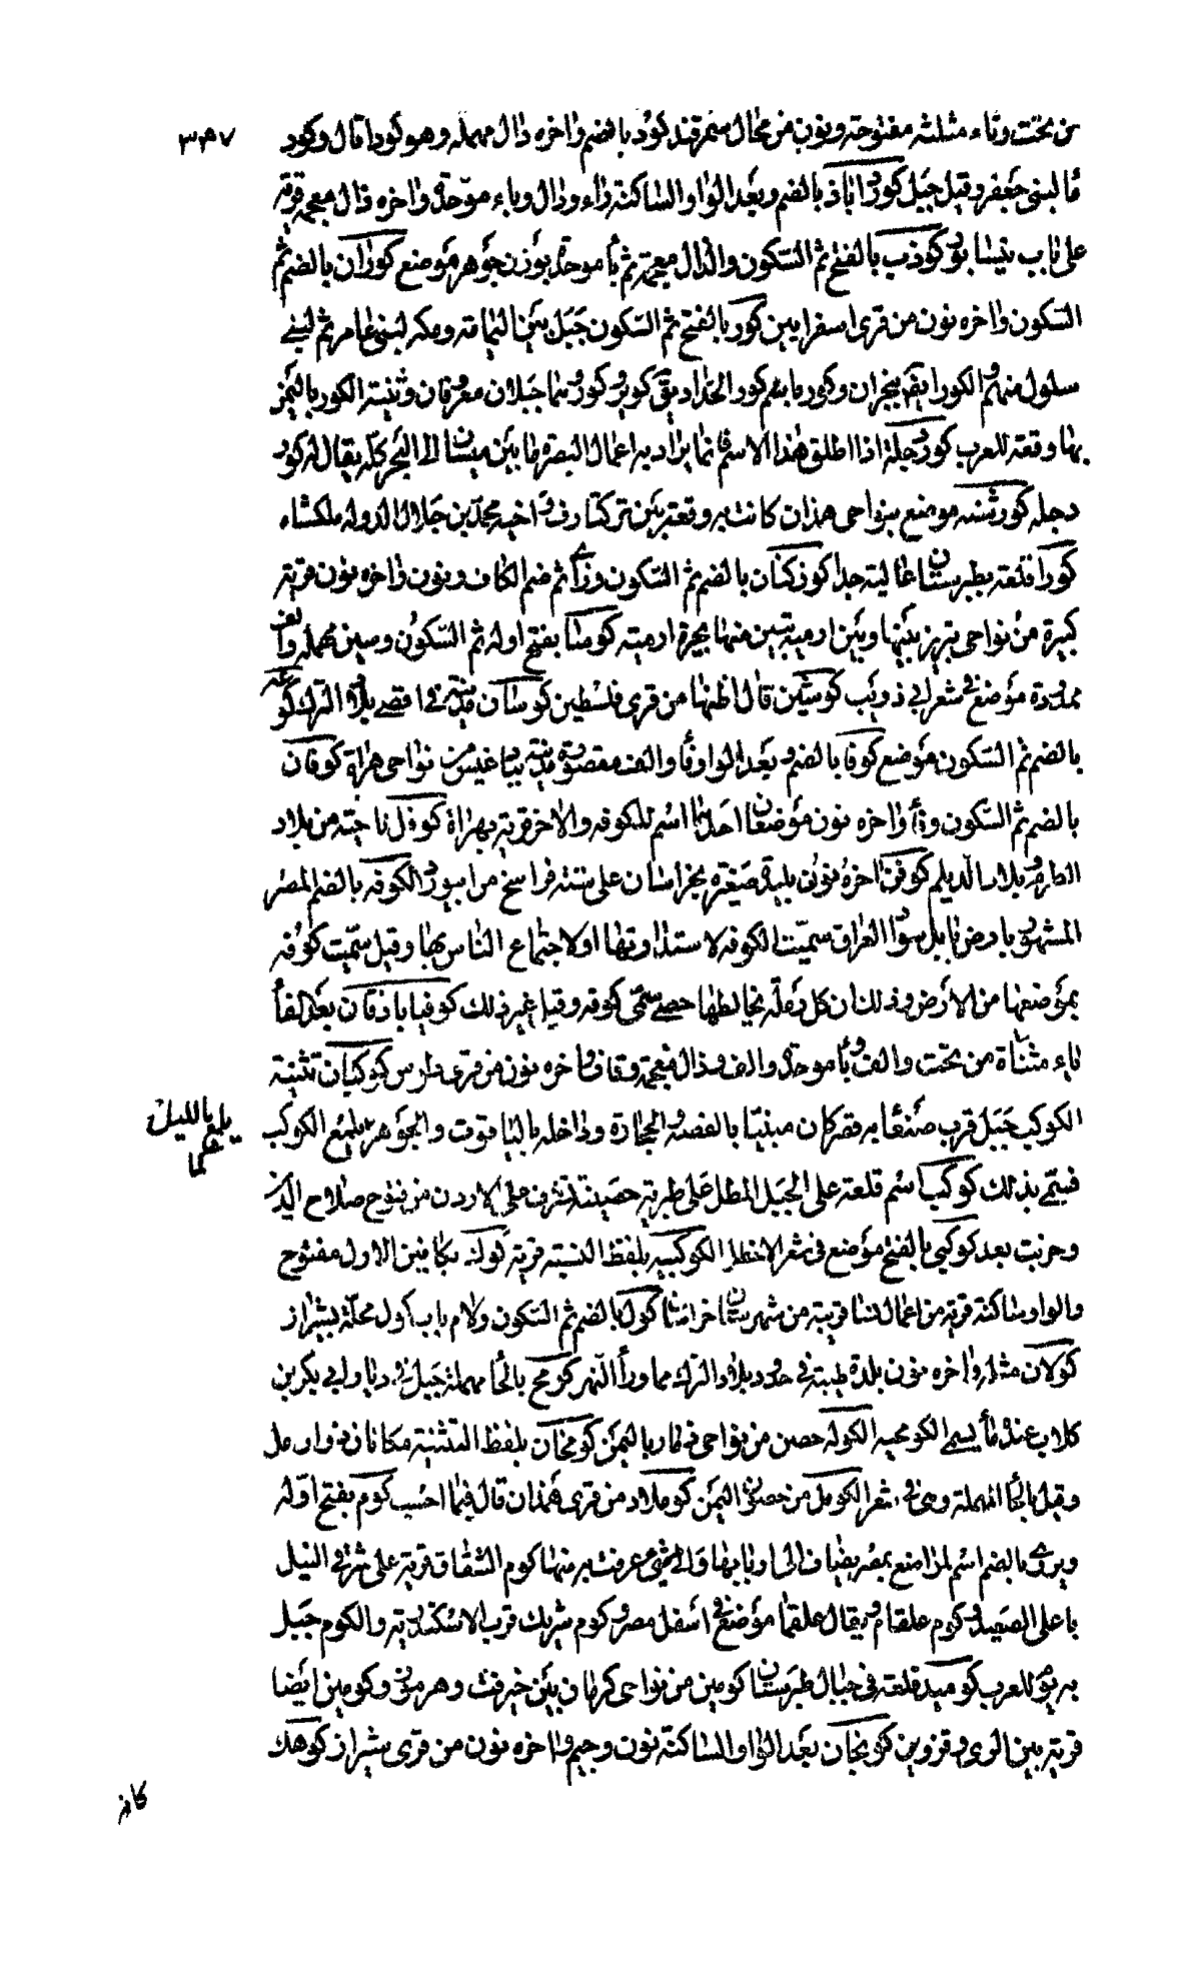 ٣٣٧
من تحت وثاء مثلثه مفتوحة ونون من محال سمرقند كود بالضم واخره دال مهمله وهو كودا ثال وكود
ما لبنى جعفر وقيل جبل كوراباذ بالضم وبعد الواو الساكنة راء ودال وباء موحدة واخره ذال معجمه قرية
على باب نيسابور كوذب بالفتح ثم السكون والذال معجمة ثم با موحدة بوزن جوهر موضع كوران بالضم ثم
السكون واخره نون من قرى اسفرايين كور بالفتح ثم السكون جبل بين اليمامة ومكه لبنى عامر ثم لبنى
سلول منهم الكور ايضا بنجران وكور بالضم كور الحداد يق كوير وكور هما جبلان معروفان وثنية الكور باليمن
بها وقعة للعرب كور دجلة اذا اطلق هذا الاسم فانما يراد به اعمال البصرة ما بين ميسان الى البحر كله يقال له كور
دجله كورشنبه موضع بنواحى همذان كانت به وقعة بين بركيارق واخيه محمد بن جلال الدوله ملكشاه
كورا قلعة بطبرستان عالية جدا كوزكنان بالضم ثم السكون وزاى ثم ضم الكاف ونون واخره نون قرية
كبيرة من نواحى تبريز بينها وبين ارمية تبين منها بحيرة ارمية كوسا بفتح اوله ثم السكون وسين مهمله والف
ممدودة موضع فى شعر ابى ذويب كوشين قال اظنها من قرى فلسطين كوشان مدينة فى اقصى بلاد الترك كوغه
بالضم ثم السكون موضع كوفا بالضم وبعد الواو فا والف مقصورة مدينة بباذغيس من نواحى هراة كوفان
بالضم ثم السكون وفا واخره نون موضعان احدهما اسم للكوفه والاخر قرية بهراة كوفل ناحية من بلاد
الطارم وبلاد الديلم كوفن اخره نون بليدة صغيرة بخراسان على ستة فراسخ من ابيورد الكوفه بالضم المصر
المشهور بارض بابل سواد العراق سميت الكوفه لاستدارتها او لاجتماع الناس بها وقيل سميت كوفه
بموضعها من الارض وذلك ان كل رملة يخالطها حصى تسمى كوفه وقيل غير ذلك كوفياباذقان بعد الفا
ياء مثناة من تحت والف وبا موحدة والف وذال معجمة وقاف واخره نون من قرى طوس كوكبان تثنية
الكوكب جبل قرب صنعا به قصر كان مبنيا بالفضة والحجارة وداخله بالياقوت والجوهر يلمع الكوكب
فسمى بذلك كوكب اسم قلعة على الجبل المطل على طبرية حصينة تشرف على الاردن من فتوح صلاح الدين
وخربت بعد كوكبى بالفتح موضع فى شعر الاخطل الكوكبيه بلفظ النسبة قرية كوكه بكافين الاول مفتوح
والواو ساكنة قرية من اعمال نسا قريبة من شهرستان خراسان كول بالضم ثم السكون ولام باب كول محلة بشيراز
كولان مثله واخره نون بلدة طيبة فى حدود بلاد الترك مما ورا النهر كومح بالحا مهملة جبل فى ديار ابى بكر بن
كلاب عنده ما يسمى الكومحيه الكوله حصن من نواحى ذمار باليمن كومحان بلفظ التثنية مكانان ذوا رمل
وقيل بالحا المهملة وهى فى شعر الكومل من حصون اليمن كوملاد من قرى همذان قال فيما احسب كوم بفتح اوله
ويروى بالضم اسم لمواضع بمصر يضاف الى اربابها والى شى عرفت به منها كوم الشقاق قرية على شرقى النيل
باعلى الصعيد كوم علقام ويقال علقما موضع فى اسفل مصر كوم شريك قرب الاسكندرية والكوم جبل
به يوم للعرب كوميد قلعة فى جبال طبرستان كومين من نواحى كرمان بين جيرفت وهرموز وكومين ايضا
قرية بين الرى وقزوين كونجان بعد الواو الساكنة نون وجيم واخره نون من قرى شيراز كوهك